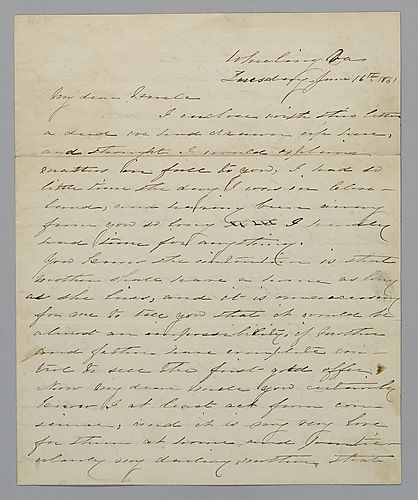 Wheeling Va
Tuesday, June 16th 1851
My dear Uncle
I enclose with this letter
a deed we had drawn up here,
and thought I would explain
matters in full to you, I had so
little time the day I was in Cleve-
land, and having been away
from you so long I hardly
had time for anything.
You know the intention is that
Mother shall have a home as long
as she lives, and it is unnecessary
for me to tell you that it would be
almost an impossibility if Mother
and father have complete con-
trol to sell the first good offer.
Now my dear Uncle you certainly
know I at least act from con
science, and it is my very love
for them at home, and partic-
ularly my darling Mother, that